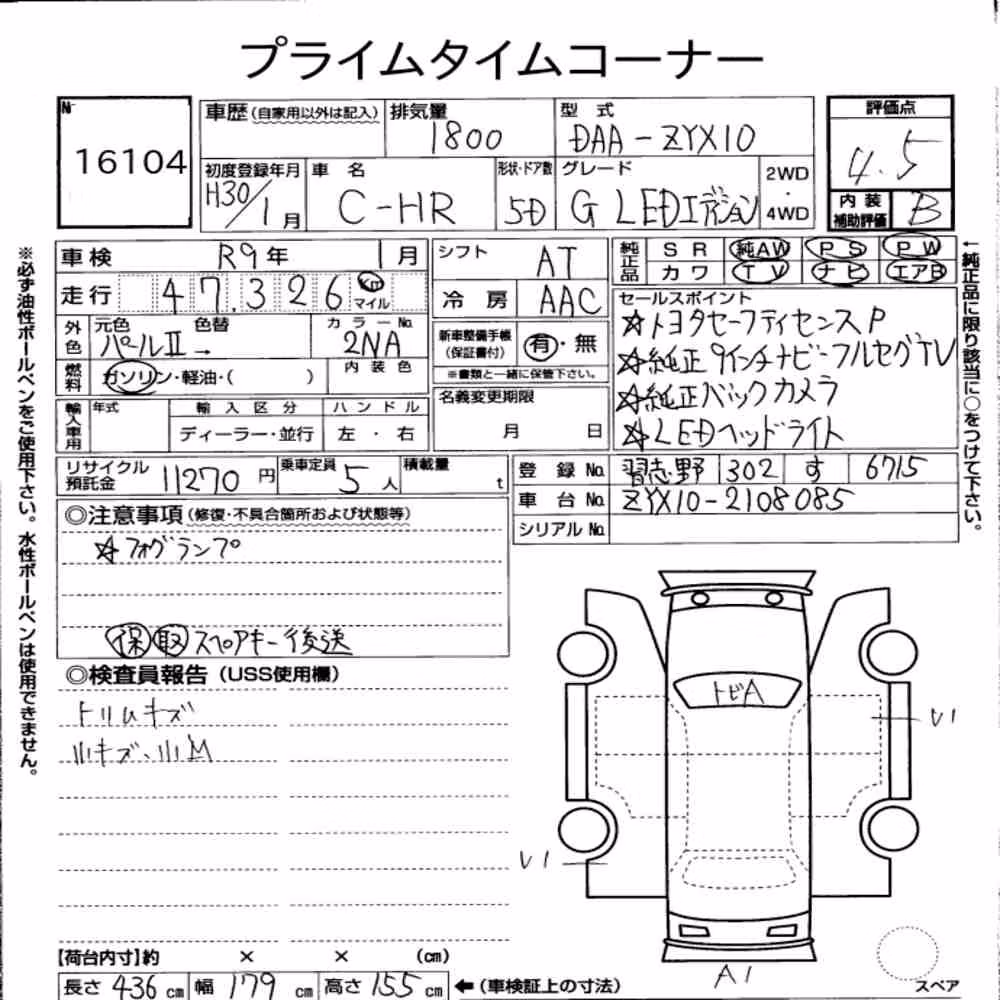 プライムタイムコーナー
No 16104
車歴(自家用以外は記入) 排気量 1800 型式 DAA-ZYX10 評価点 4.5
初度登録年月 H30/1月 車名 C-HR 形状・ドア数 5D グレード G LEDエディション 2WD・4WD 内装補助評価 B
車検 R9年1月 シフト AT 純正品 SR 純AW PS PW
走行 47.326 Km マイル 冷房 AAC カワ TV ナビ エアB
外色 元色 パールⅡ 色替 → カラーNo. 2NA 新車整備手帳(保証書付) 有・無
燃料 ガソリン・軽油・( ) 内装色 ※書類と一緒に保管下さい。
セールスポイント
☆トヨタセーフティセンスP
☆純正9インチナビ-フルセグTV
☆純正バックカメラ
☆LEDヘッドライト
輸入車用 年式 輸入区分 ハンドル 名義変更期限
ディーラー・並行 左・右 月 日
リサイクル預託金 11270円 乗車定員 5人 積載量 t
登録No. 習志野 302 す 6715
車台No. ZYX10-2108085
シリアルNo.
◎注意事項(修復・不具合箇所および状態等)
☆フォグランプ
保 取 スペアキー後送
◎検査員報告(USS使用欄)
トリムキズ
小キズ、小凹
トビA
V1
V1
A1
スペア
【荷台内寸】約 × × (cm)
長さ 436 cm 幅 179 cm 高さ 155 cm ←(車検証上の寸法)
※必ず油性ボールペンをご使用下さい。水性ボールペンは使用できません。
←純正品に限り該当に○をつけて下さい。